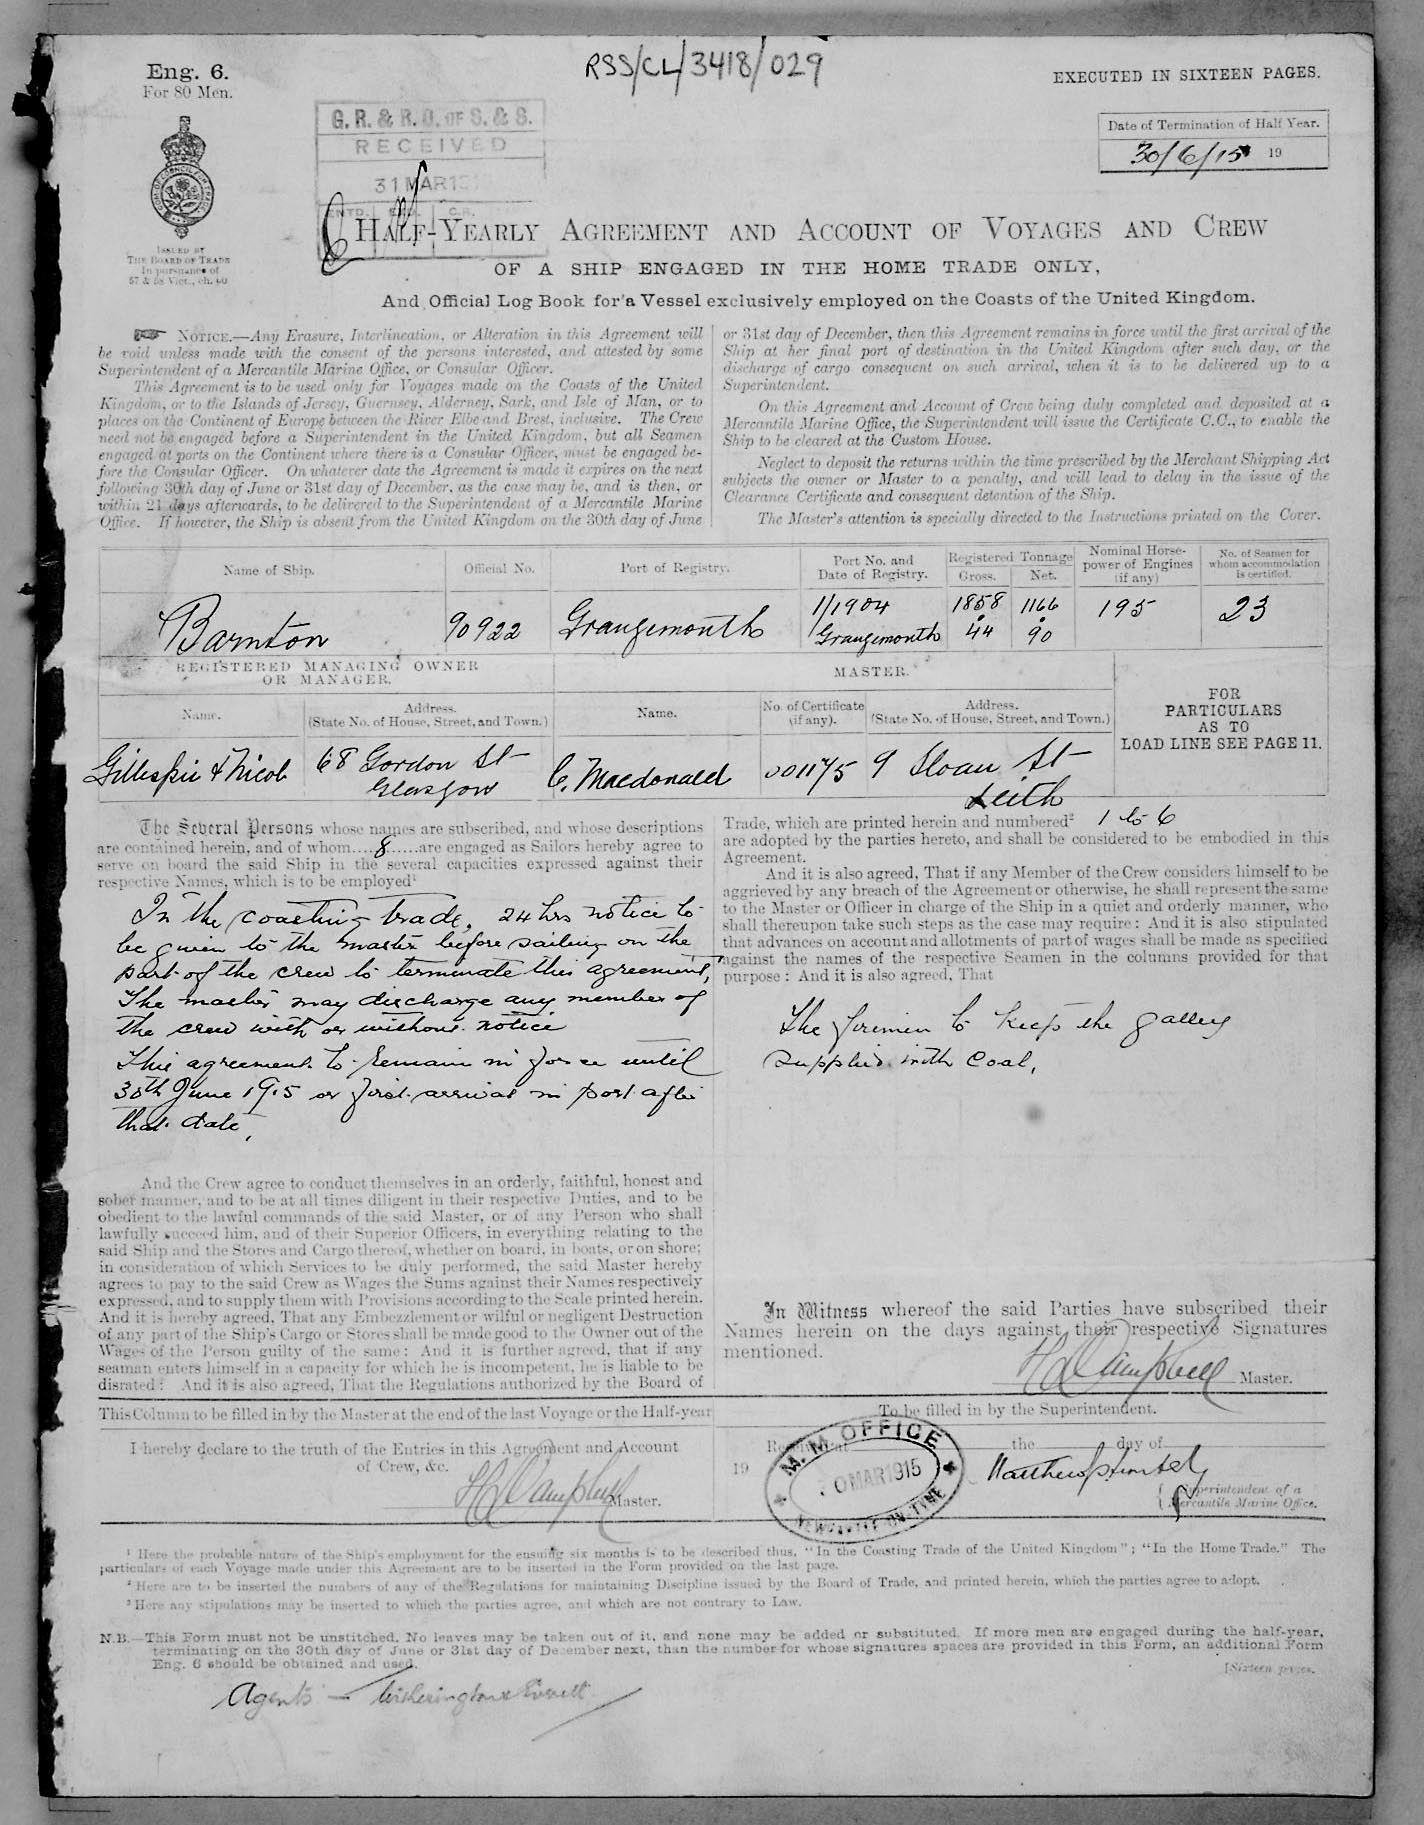 RSS/CL/3418/029
Eng. 6.
For 80 Men.
EXECUTED IN SIXTEEN PAGES.
G. R. & R. O. OF S. & S.
RECEIVED
31 MAR 15
Date of Termination of Half Year.
30/6/15 19
ISSUED BY
THE BOARD OF TRADE
In pursuance of
57 & 58 Vict., ch. 60
HALF-YEARLY AGREEMENT AND ACCOUNT OF VOYAGES AND CREW
OF A SHIP ENGAGED IN THE HOME TRADE ONLY,
And Official Log Book for a Vessel exclusively employed on the Coasts of the United Kingdom.
NOTICE.—Any Erasure, Interlineation, or Alteration in this Agreement will
be void unless made with the consent of the persons interested, and attested by some
Superintendent of a Mercantile Marine Office, or Consular Officer.
This Agreement is to be used only for Voyages made on the Coasts of the United
Kingdom, or to the Islands of Jersey, Guernsey, Alderney, Sark, and Isle of Man, or to
places on the Continent of Europe between the River Elbe and Brest, inclusive. The Crew
need not be engaged before a Superintendent in the United Kingdom, but all Seamen
engaged at ports on the Continent where there is a Consular Officer, must be engaged be-
fore the Consular Officer. On whatever date the Agreement is made it expires on the next
following 30th day of June or 31st day of December, as the case may be, and is then, or
within 21 days afterwards, to be delivered to the Superintendent of a Mercantile Marine
Office. If however, the Ship is absent from the United Kingdom on the 30th day of June
or 31st day of December, then this Agreement remains in force until the first arrival of the
Ship at her final port of destination in the United Kingdom after such day, or the
discharge of cargo consequent on such arrival, when it is to be delivered up to a
Superintendent.
On this Agreement and Account of Crew being duly completed and deposited at a
Mercantile Marine Office, the Superintendent will issue the Certificate C.C., to enable the
Ship to be cleared at the Custom House.
Neglect to deposit the returns within the time prescribed by the Merchant Shipping Act
subjects the owner or Master to a penalty, and will lead to delay in the issue of the
Clearance Certificate and consequent detention of the Ship.
The Master's attention is specially directed to the Instructions printed on the Cover.
Name of Ship.
Official No.
Port of Registry.
Port No. and
Date of Registry.
Registered Tonnage
Gross.
Net.
Nominal Horse-
power of Engines
(if any)
No. of Seamen for
whom accommodation
is certified.
Barnton
90922
Grangemouth
1/1904
Grangemouth
1858
44
1166
90
195
23
REGISTERED MANAGING OWNER
OR MANAGER.
MASTER.
Name.
Address.
(State No. of House, Street, and Town.)
Name.
No. of Certificate
(if any).
Address.
(State No. of House, Street, and Town.)
FOR
PARTICULARS
AS TO
LOAD LINE SEE PAGE 11.
Gillespie & Nicol
68 Gordon St
Glasgow
C. Macdonald
001175
9 Sloan St
Leith
The Several Persons whose names are subscribed, and whose descriptions
are contained herein, and of whom....8.....are engaged as Sailors hereby agree to
serve on board the said Ship in the several capacities expressed against their
respective Names, which is to be employed¹
In the coasting trade, 24 hrs notice to
be given to the master before sailing on the
part of the crew to terminate this agreement,
The master may discharge any member of
the crew with or without notice
This agreement to remain in force until
30th June 1915 or first arrival in port after
that date,
And the Crew agree to conduct themselves in an orderly, faithful, honest and
sober manner, and to be at all times diligent in their respective Duties, and to be
obedient to the lawful commands of the said Master, or of any Person who shall
lawfully succeed him, and of their Superior Officers, in everything relating to the
said Ship and the Stores and Cargo thereof, whether on board, in boats, or on shore;
in consideration of which Services to be duly performed, the said Master hereby
agrees to pay to the said Crew as Wages the Sums against their Names respectively
expressed, and to supply them with Provisions according to the Scale printed herein.
And it is hereby agreed, That any Embezzlement or wilful or negligent Destruction
of any part of the Ship's Cargo or Stores shall be made good to the Owner out of the
Wages of the Person guilty of the same: And it is further agreed, that if any
seaman enters himself in a capacity for which he is incompetent, he is liable to be
disrated: And it is also agreed, That the Regulations authorized by the Board of
Trade, which are printed herein and numbered² 1 to 6
are adopted by the parties hereto, and shall be considered to be embodied in this
Agreement.
And it is also agreed, That if any Member of the Crew considers himself to be
aggrieved by any breach of the Agreement or otherwise, he shall represent the same
to the Master or Officer in charge of the Ship in a quiet and orderly manner, who
shall thereupon take such steps as the case may require: And it is also stipulated
that advances on account and allotments of part of wages shall be made as specified
against the names of the respective Seamen in the columns provided for that
purpose: And it is also agreed, That
The firemen to keep the galley
supplied with coal,
In Witness whereof the said Parties have subscribed their
Names herein on the days against their respective Signatures
mentioned.
Campbell Master.
This Column to be filled in by the Master at the end of the last Voyage or the Half-year
To be filled in by the Superintendent.
I hereby declare to the truth of the Entries in this Agreement and Account
of Crew, &c.
Campbell Master.
Received at the day of
19
M. M. OFFICE
0 MAR 1915
NEWCASTLE-ON-TYNE
Superintendent of a
Mercantile Marine Office.
¹ Here the probable nature of the Ship's employment for the ensuing six months is to be described thus, "In the Coasting Trade of the United Kingdom"; "In the Home Trade." The
particulars of each Voyage made under this Agreement are to be inserted in the Form provided on the last page.
² Here are to be inserted the numbers of any of the Regulations for maintaining Discipline issued by the Board of Trade, and printed herein, which the parties agree to adopt.
³ Here any stipulations may be inserted to which the parties agree, and which are not contrary to Law.
N.B.—This Form must not be unstitched. No leaves may be taken out of it, and none may be added or substituted. If more men are engaged during the half-year,
terminating on the 30th day of June or 31st day of December next, than the number for whose signatures spaces are provided in this Form, an additional Form
Eng. 6 should be obtained and used.
[Sixteen pages.
Agents — Witherington & Everett